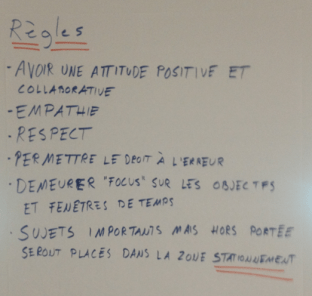 Règles
· AVOIR UNE ATTITUDE POSITIVE ET
COLLABORATIVE
· EMPATHIE
· RESPECT
· PERMETTRE LE DROIT À L'ERREUR
· DEMEURER "FOCUS" SUR LES OBJECTFS
ET FENÊTRES DE TEMPS
· SUJETS IMPORTANTS MAIS HORS PORTÉE
SERONT PLACÉS DANS LA ZONE STATIONNEMENT